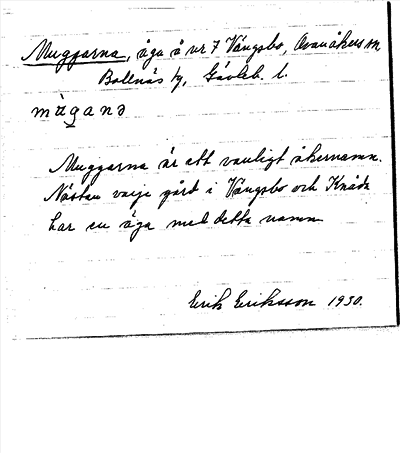 Muggarna, äga å nr 7 Vängsbo, Ovanåkers sn
Bollnäs tg, Gävleb. l.
mùganə
Muggarna är ett vanligt åkernamn.
Nästan varje gård i Vängsbo och Knåda
har en äga med detta namn
Erik Eriksson 1930.